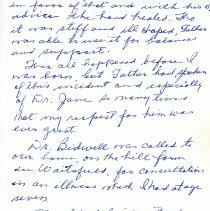 in favor of that and with his
advice the hand healed. Tho
it was stiff and ill shaped, Father
was able to use it for balance
and support.
This all happened before I
was born but Father had spoken
of this incident and especially
of Dr. Jane so many times
that my respect for him was
ever great.
Dr. Bidwell was called to
our home, on the hill farm
in Waitsfield, for consultation
on an illness which I had at age
seven.